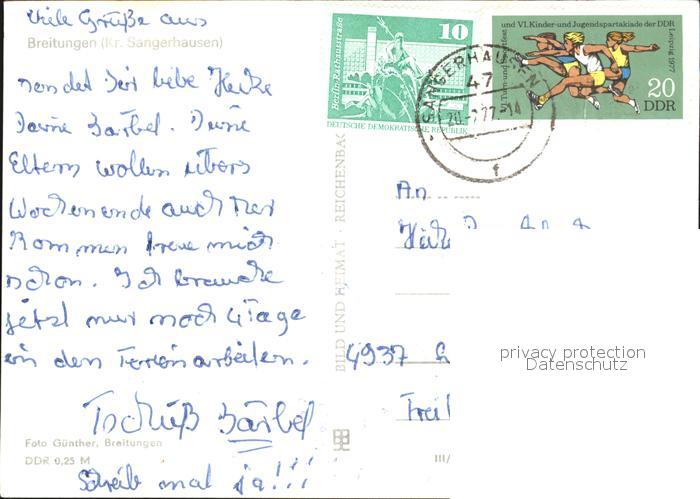 Viele Grüße aus
Breitungen (Kr. Sangerhausen)
sendet Dir liebe Heike
Deine Bärbel. Deine
Eltern wollen übers
Wochenende auch her
kommen freue mich
schon. Ich brauche
jetzt nur noch 4 Tage
in den Ferien arbeiten.
Tschüß Bärbel
Schreib mal ja!!!
Foto Günther, Breitungen
DDR 0,25 M
BILD UND HEIMAT · REICHENBAC
III/
Berlin, Rathausstraße
10
DEUTSCHE DEMOKRATISCHE REPUBLIK
und VI. Kinder- und Jugendspartakiade der DDR
Leipzig 1977
20
DDR
SANGERHAUSEN
47
77-14
f
An
4937
privacy protection
Datenschutz